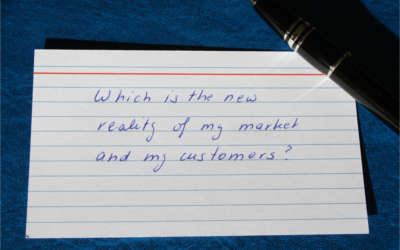 Which is the new
reality of my market
and my customers?